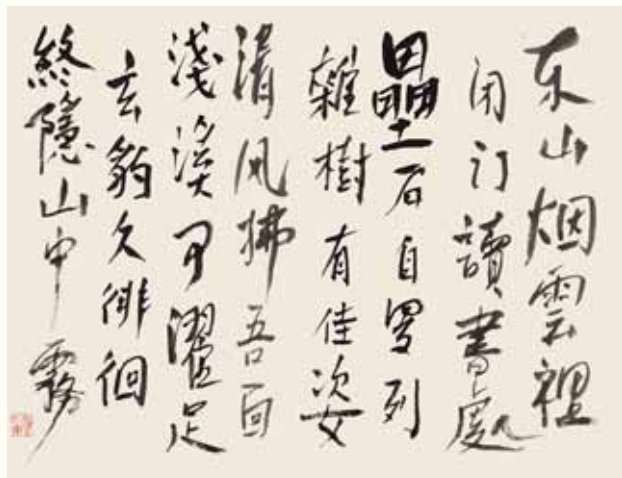 东山烟雲裡
闭门讀書處
壘石自羅列
雜樹有佳姿
清风拂吾面
淺溪可濯足
玄豹久徘徊
終隱山中霧